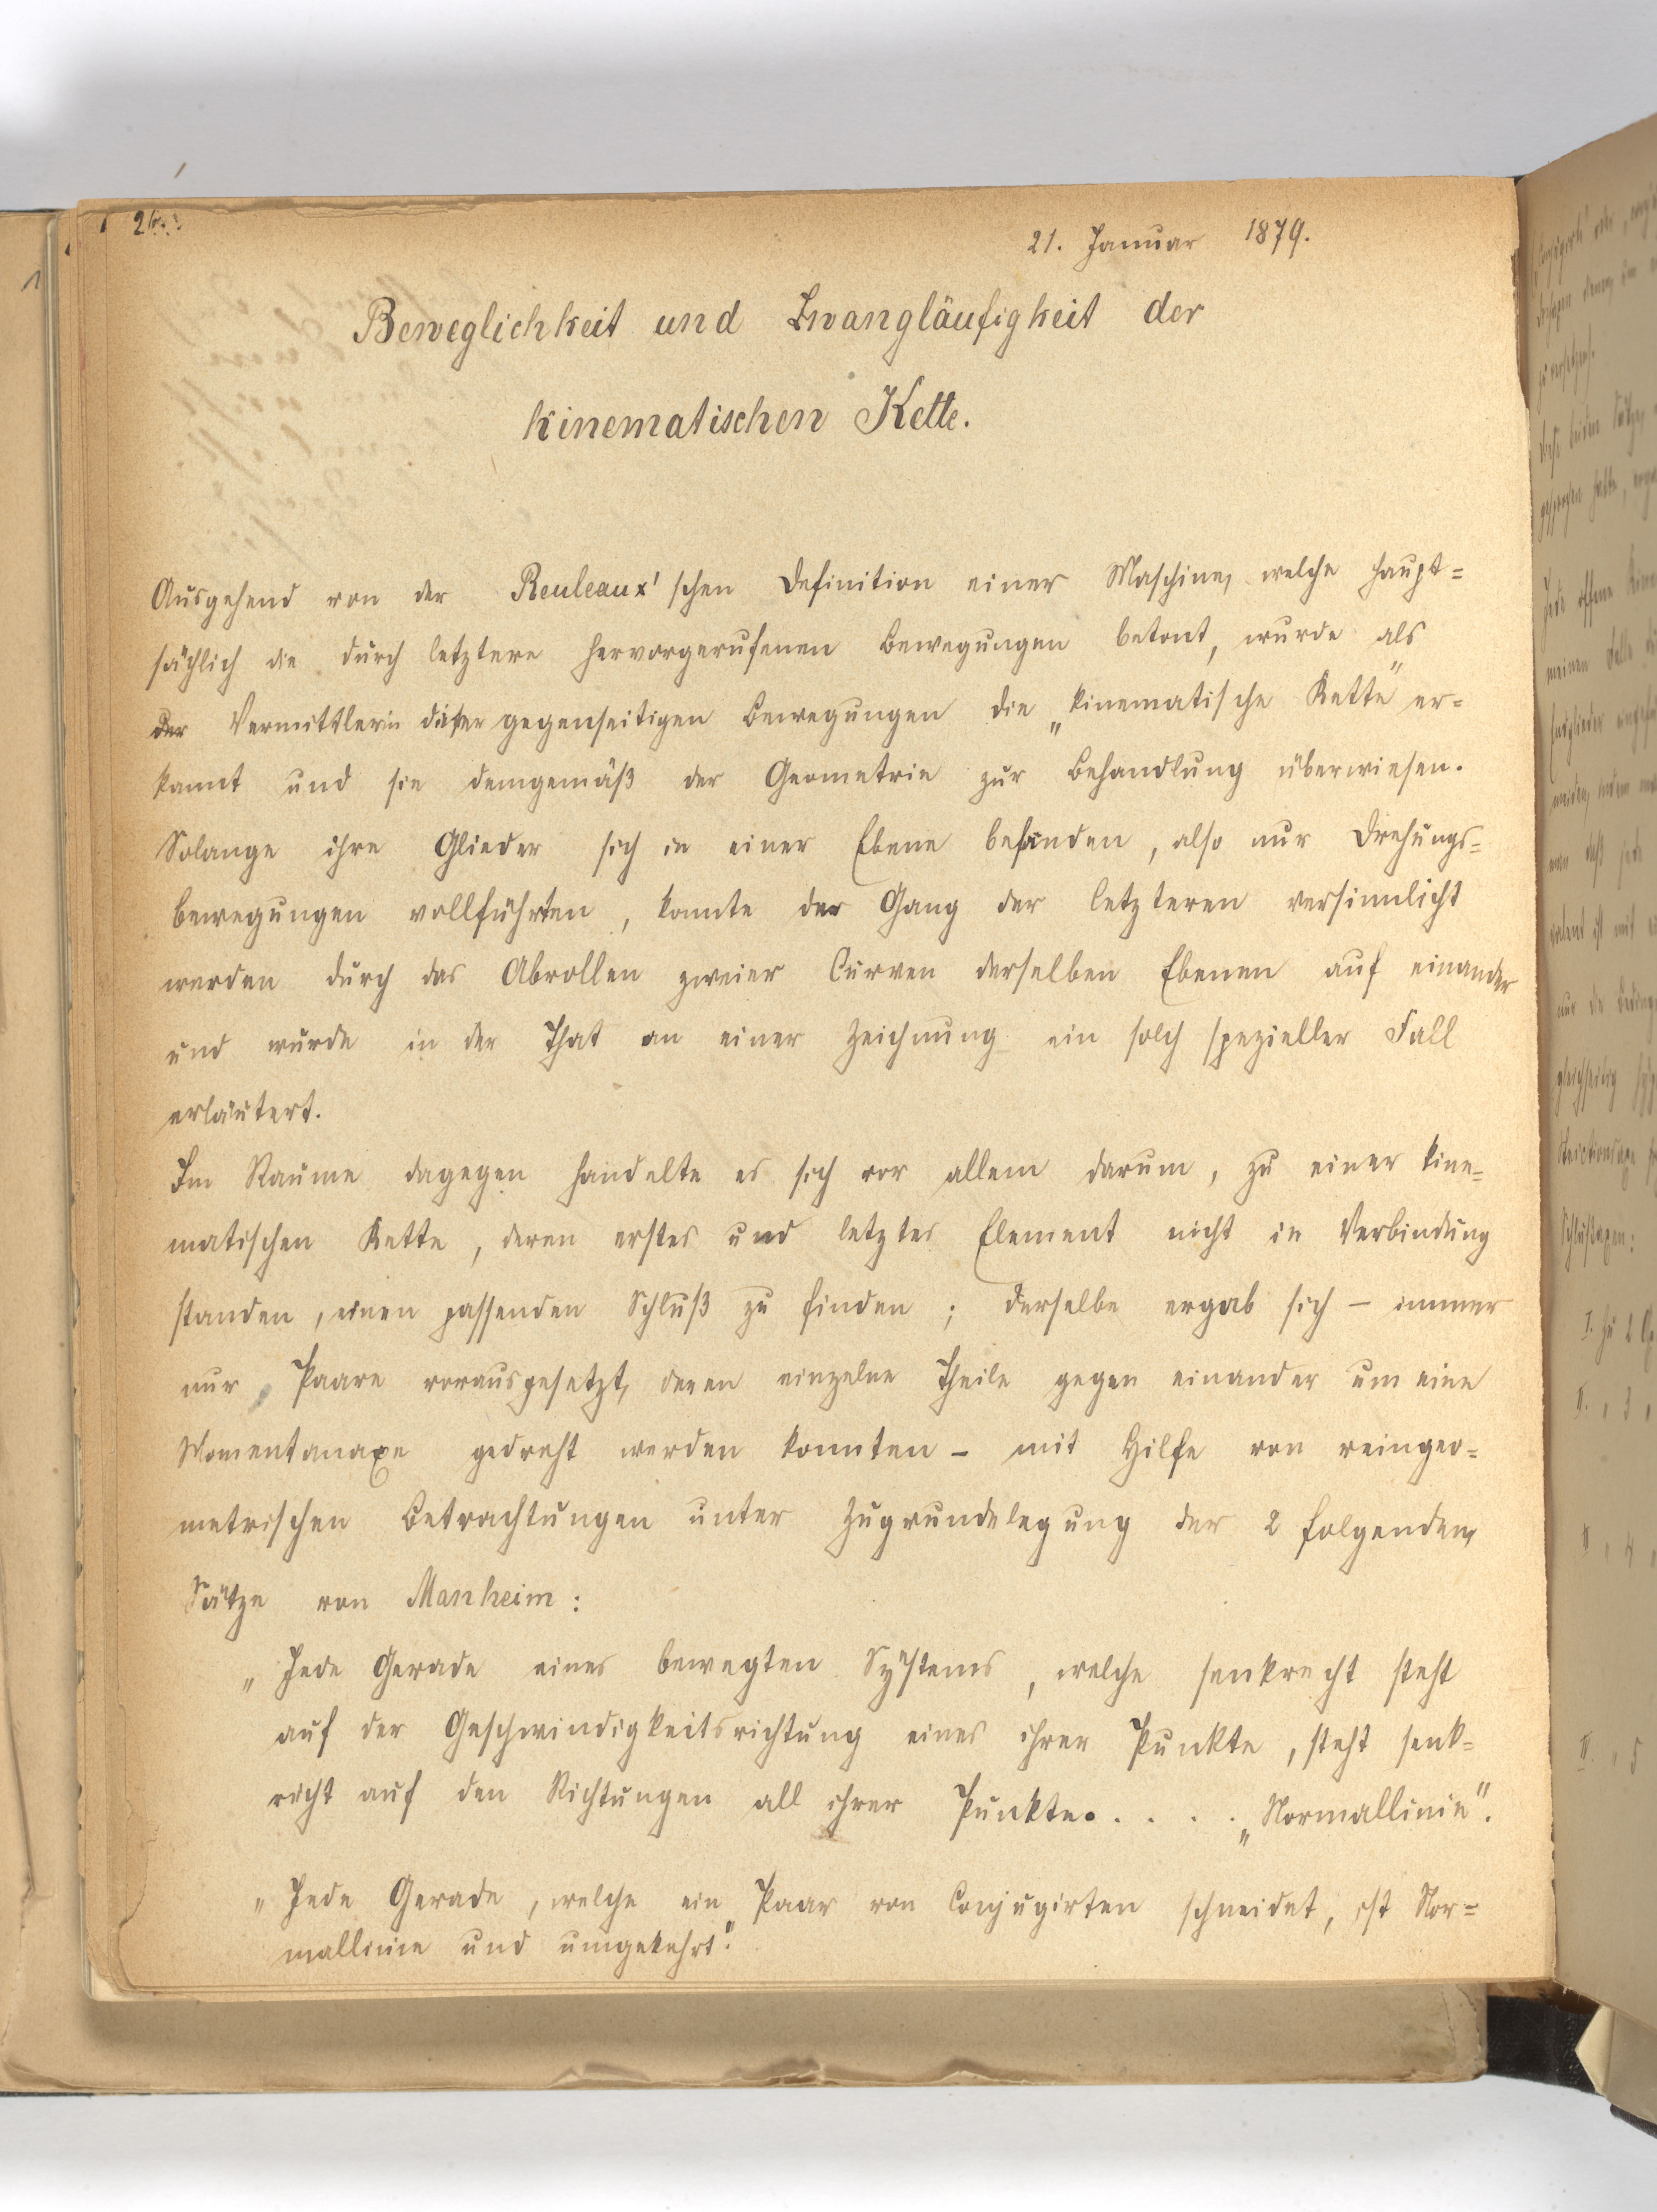 21. Januar 1879.
Beweglichkeit und Zwangläufigkeit der
kinematischen Kette.
Ausgehend von der Reuleaux'schen Definition einer Maschine, welche haupt=
sächlich die durch letztere hervorgerufenen Bewegungen betont, wurde als
der Vermittlerin dieser gegenseitigen Bewegungen die „kinematische Kette" er=
kannt und sie demgemäß der Geometrie zur Behandlung überwiesen.
Solange ihre Glieder sich in einer Ebene befänden, also nur Drehungs=
bewegungen vollführten, konnte der Gang der letzteren versinnlicht
werden durch das Abrollen zweier Curven derselben Ebenen auf einander
und wurde in der That an einer Zeichnung ein solch spezieller Fall
erläutert.
Im Raume dagegen handelte es sich vor allem darum, zu einer kine=
matischen Kette, deren erstes und letztes Element nicht in Verbindung
standen, einen passenden Schluß zu finden; derselbe ergab sich – immer
nur Paare vorausgesetzt, deren einzelne Theile gegen einander um eine
Momentanaxe gedreht werden konnten – mit Hilfe von reingeo=
metrischen Betrachtungen unter Zugrundelegung der 2 folgenden
Sätze von Manheim:
„Jede Gerade eines bewegten Systems, welche senkrecht steht
auf der Geschwindigkeitsrichtung eines ihrer Punkte, steht senk=
recht auf den Richtungen all ihrer Punkte. . . . . „Normallinie".
„Jede Gerade, welche ein Paar von Conjugirten schneidet, ist Nor=
mallinie und umgekehrt."